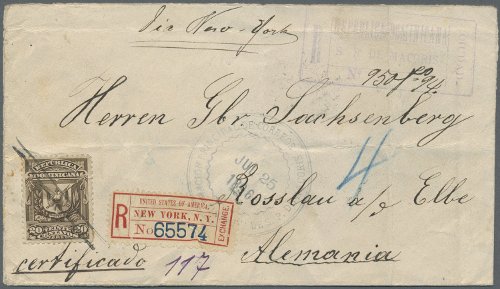 via New-York
REPUBLICA DOMINICANA
R
No
950
Herren Gbr. Sachsenberg
4
JUL 25
Rosslau a/d Elbe
Alemania
REPUBLICA
DOMINICANA
20 VEINTE 20
R
UNITED STATES OF AMERICA.
NEW YORK, N.Y.
No 65574
EXCHANGE.
certificado
117